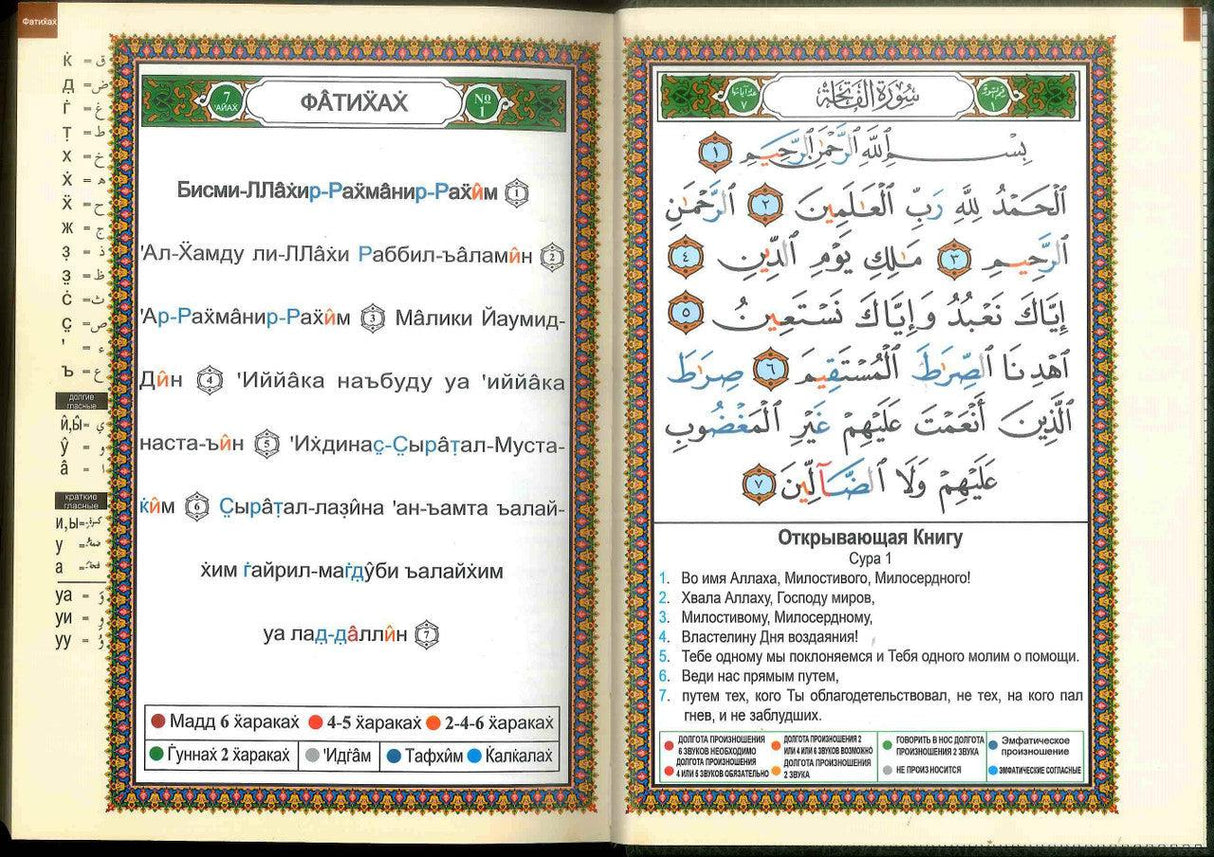 Фатиẋаẋ
К̇ = ق
Д̣ = ض
Г̇ = غ
Т̣ = ط
Х = خ
Ẋ = ه
Ẍ = ح
Ж = ج
З̣ = ذ
З̤ = ظ
Ċ = ث
С̤ = ص
' = ء
Ъ = ع
долгие
гласные
й̂,ы̂ = ي
у̂ = و
а̂ = ا
краткие
гласные
и,ы=
у =
а =
уа = وَ
уи = وِ
уу = وُ
7
'АЙАẊ
ФÂТИẌАẊ
№
1
Бисми-ЛЛâẋир-Раẍмâнир-Раẍûм 1
'Ал-Ẍамду ли-ЛЛâẋи Раббил-ъâламûн 2
'Ар-Раẍмâнир-Раẍûм 3 Мâлики Йаумид-
Дûн 4 'Иййâка наъбуду уа 'иййâка
наста-ъûн 5 'Иẋдинас̤-С̤ырâт̣ал-Муста-
к̇ûм 6 С̤ырâт̣ал-лаз̣ûна 'ан-ъамта ъалай-
ẋим г̇айрил-маг̇д̣ŷби ъалайẋим
уа лад̣-д̣âллûн 7
Мадд 6 ẍаракаẋ 4-5 ẍаракаẋ 2-4-6 ẍаракаẋ
Г̇уннаẋ 2 ẍаракаẋ 'Идг̇âм Тафхûм К̇алк̇алаẋ
عدد آياتها
٧
سُورَةُ الْفَاتِحَة
رقم السورة
١
بِسْمِ ٱللَّهِ ٱلرَّحْمَٰنِ ٱلرَّحِيمِ ١
ٱلْحَمْدُ لِلَّهِ رَبِّ ٱلْعَٰلَمِينَ ٢ ٱلرَّحْمَٰنِ
ٱلرَّحِيمِ ٣ مَٰلِكِ يَوْمِ ٱلدِّينِ ٤
إِيَّاكَ نَعْبُدُ وَإِيَّاكَ نَسْتَعِينُ ٥
ٱهْدِنَا ٱلصِّرَٰطَ ٱلْمُسْتَقِيمَ ٦ صِرَٰطَ
ٱلَّذِينَ أَنْعَمْتَ عَلَيْهِمْ غَيْرِ ٱلْمَغْضُوبِ
عَلَيْهِمْ وَلَا ٱلضَّآلِّينَ ٧
Открывающая Книгу
Сура 1
1. Во имя Аллаха, Милостивого, Милосердного!
2. Хвала Аллаху, Господу миров,
3. Милостивому, Милосердному,
4. Властелину Дня воздаяния!
5. Тебе одному мы поклоняемся и Тебя одного молим о помощи.
6. Веди нас прямым путем,
7. путем тех, кого Ты облагодетельствовал, не тех, на кого пал
гнев, и не заблудших.
ДОЛГОТА ПРОИЗНОШЕНИЯ
6 ЗВУКОВ НЕОБХОДИМО
ДОЛГОТА ПРОИЗНОШЕНИЯ
4 ИЛИ 5 ЗВУКОВ ОБЯЗАТЕЛЬНО
ДОЛГОТА ПРОИЗНОШЕНИЯ 2
ИЛИ 4 ИЛИ 6 ЗВУКОВ ВОЗМОЖНО
ДОЛГОТА ПРОИЗНОШЕНИЯ
2 ЗВУКА
ГОВОРИТЬ В НОС ДОЛГОТА
ПРОИЗНОШЕНИЯ 2 ЗВУКА
НЕ ПРОИЗНОСИТСЯ
Эмфатическое
произношение
ЭМФАТИЧЕСКИЕ СОГЛАСНЫЕ